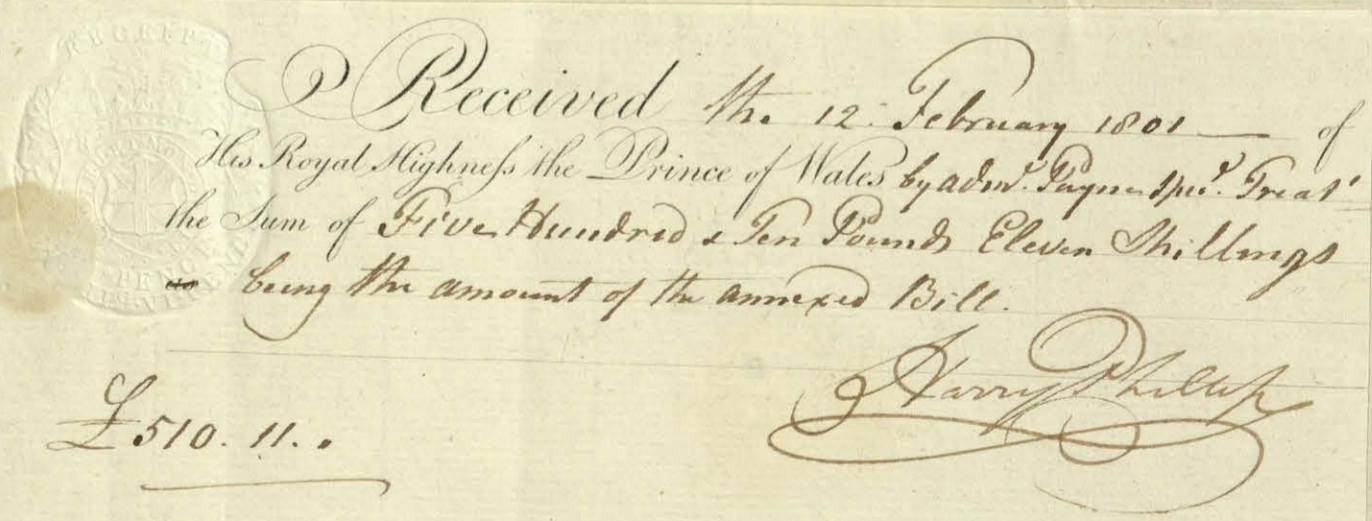 RECEIPT
Received the 12 February 1801 — of
His Royal Highness the Prince of Wales by Adm.l Payne Treas.r
the Sum of Five Hundred & Ten Pounds Eleven Shillings
being the amount of the annexed Bill.
Harry Phillips
£510.11..